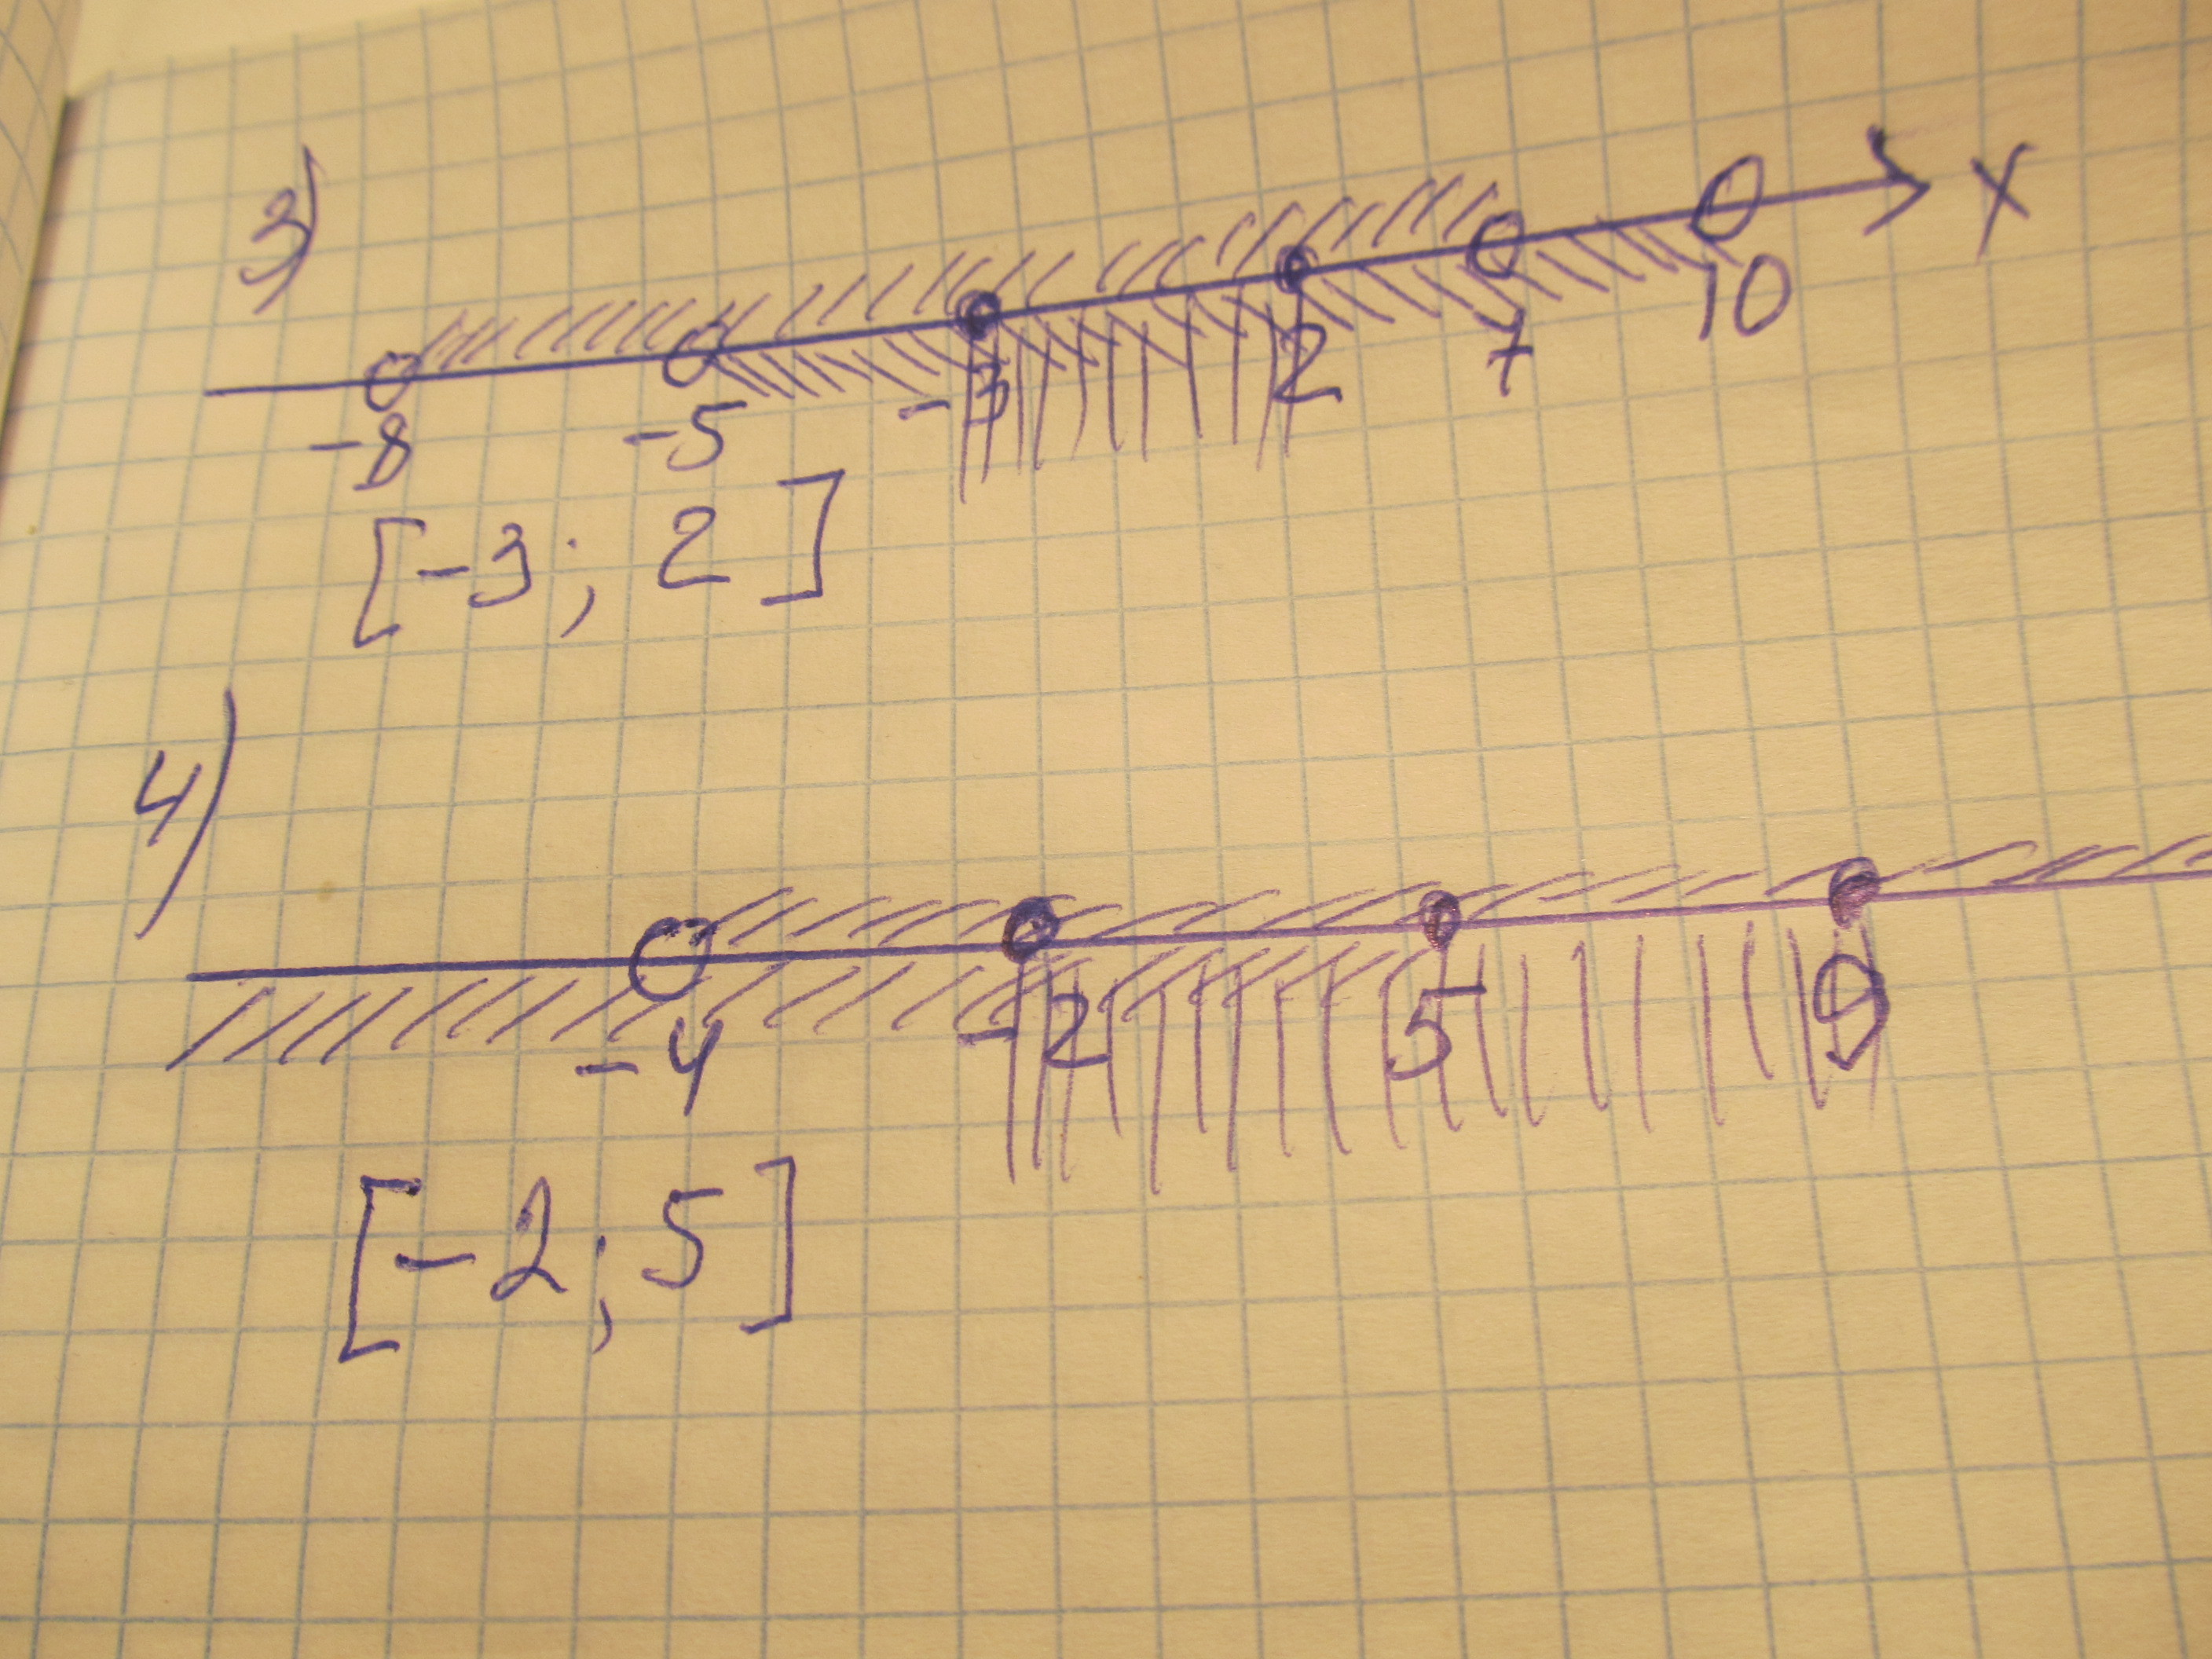 3)
x
-8 -5 -3 2 7 10
[-3; 2]
4)
-4 -2 5 9
[-2; 5]